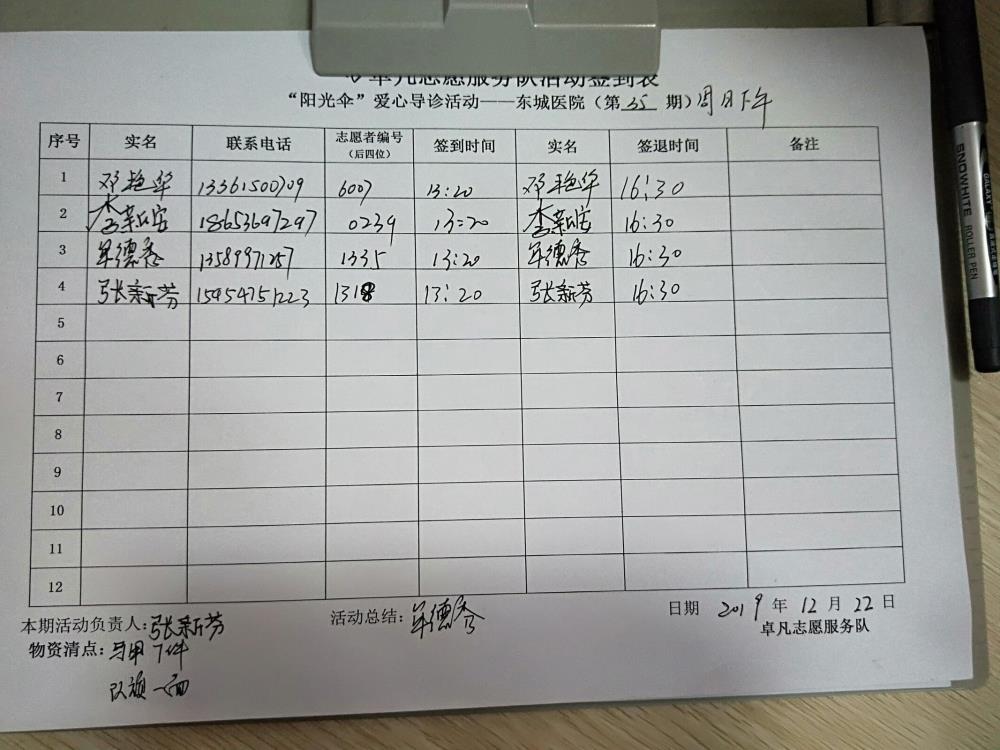 卓凡志愿服务队活动签到表
“阳光伞”爱心导诊活动——东城医院（第 35 期）周日下午
序号 实名 联系电话 志愿者编号（后四位） 签到时间 实名 签退时间 备注
1 邓艳华 13361500709 6007 13:20 邓艳华 16:30
2 李新安 18653697297 0239 13:20 李新安 16:30
3 单德秀 1335 13:20 单德秀 16:30
4 张新芳 15954751223 1318 13:20 张新芳 16:30
5
6
7
8
9
10
11
12
本期活动负责人：张新芳 活动总结：单德秀 日期 2019 年 12 月 22 日
物资清点：马甲 7件 卓凡志愿服务队
队旗一面
SNOWHITE ROLLER PEN